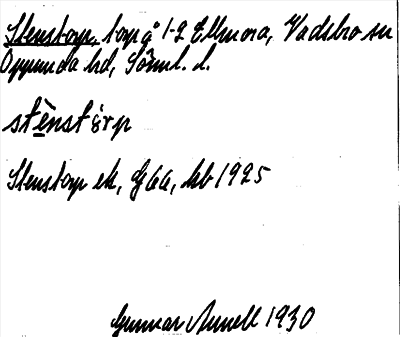 Stenstorp, torp å 1-2 Ellmora, Vadsbro sn
Oppunda hd, Södml. l.
stènstòrp
Stenstorp ek, G66, kb 1925
Gunnar Arnell 1930